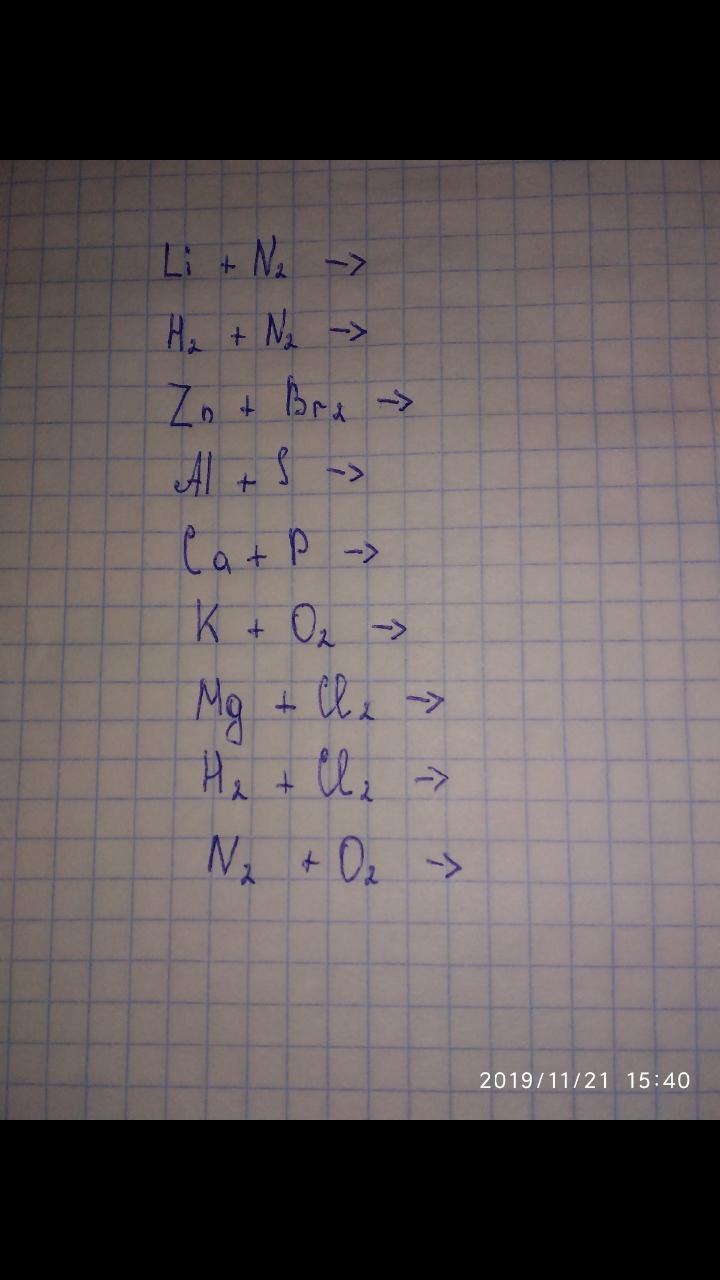 Li + N₂ →
H₂ + N₂ →
Zn + Br₂ →
Al + S →
Ca + P →
K + O₂ →
Mg + Cl₂ →
H₂ + Cl₂ →
N₂ + O₂ →
2019/11/21 15:40